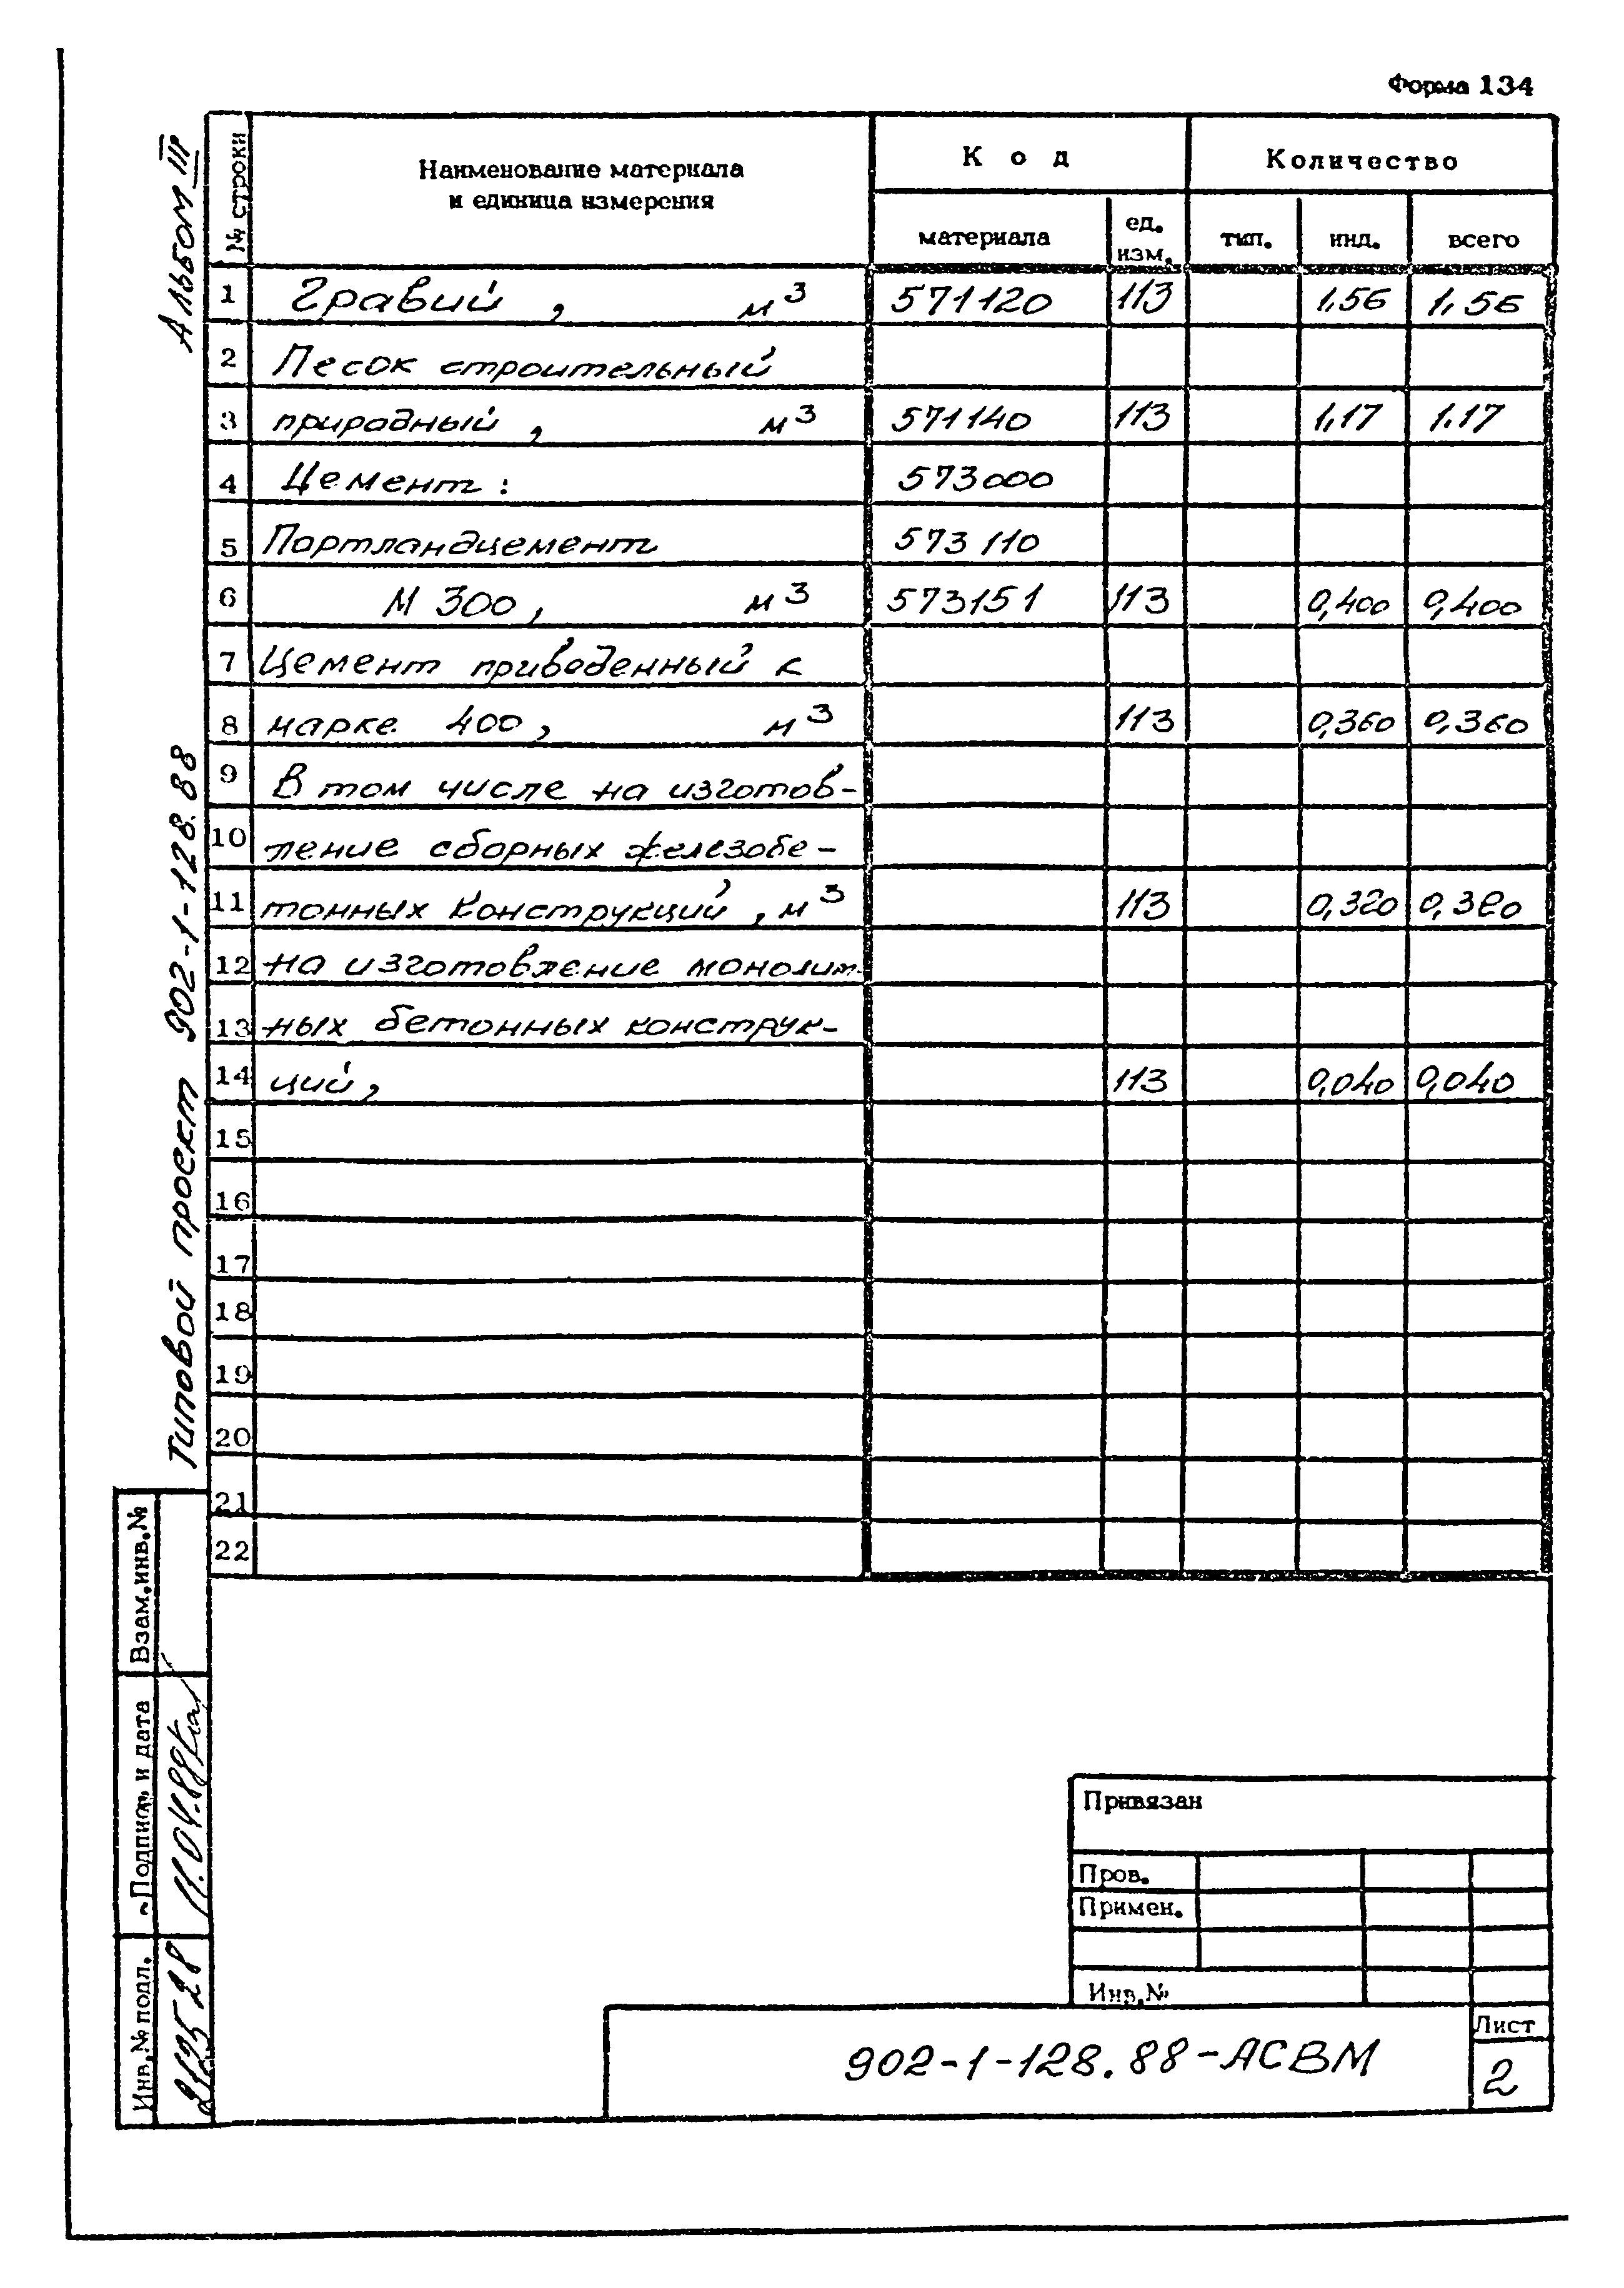 Форма 134
Альбом III
Типовой проект 902-1-128.88
№ строки
Наименование материала
и единица измерения
Код
Количество
материала
ед.
изм.
тип.
инд.
всего
1 Гравий, м3 571120 113 1,56 1,56
2 Песок строительный
3 природный, м3 571140 113 1,17 1.17
4 Цемент: 573000
5 Портландцемент 573110
6 М 300, м3 573151 113 0,400 0,400
7 Цемент приведенный к
8 марке 400, м3 113 0,360 0,360
9 В том числе на изготов-
10 ление сборных железобе-
11 тонных конструкций, м3 113 0,320 0,320
12 на изготовление монолит-
13 ных бетонных конструк-
14 ций, 113 0,040 0,040
15
16
17
18
19
20
21
22
Взам.инв.№
Подпись и дата
11.04.89
Инв.№ подл.
Привязан
Пров.
Примен.
Инв.№
902-1-128.88-АСВМ
Лист
2